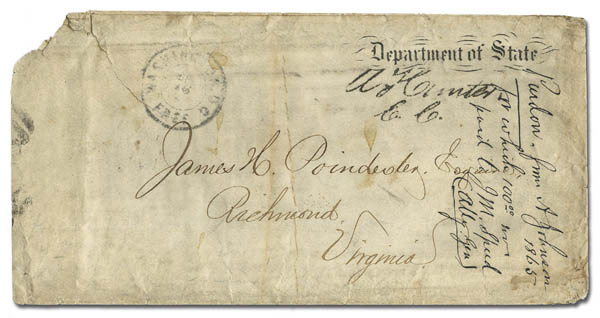 WASHINGTON D.C.
FREE
Department of State
W Hunter
C. C.
James H. Poindexter, Esquire
Richmond
Virginia
Pardon from A Johnson
1865
for which 100.00 was
paid to J. M. Speed
Atty Gen